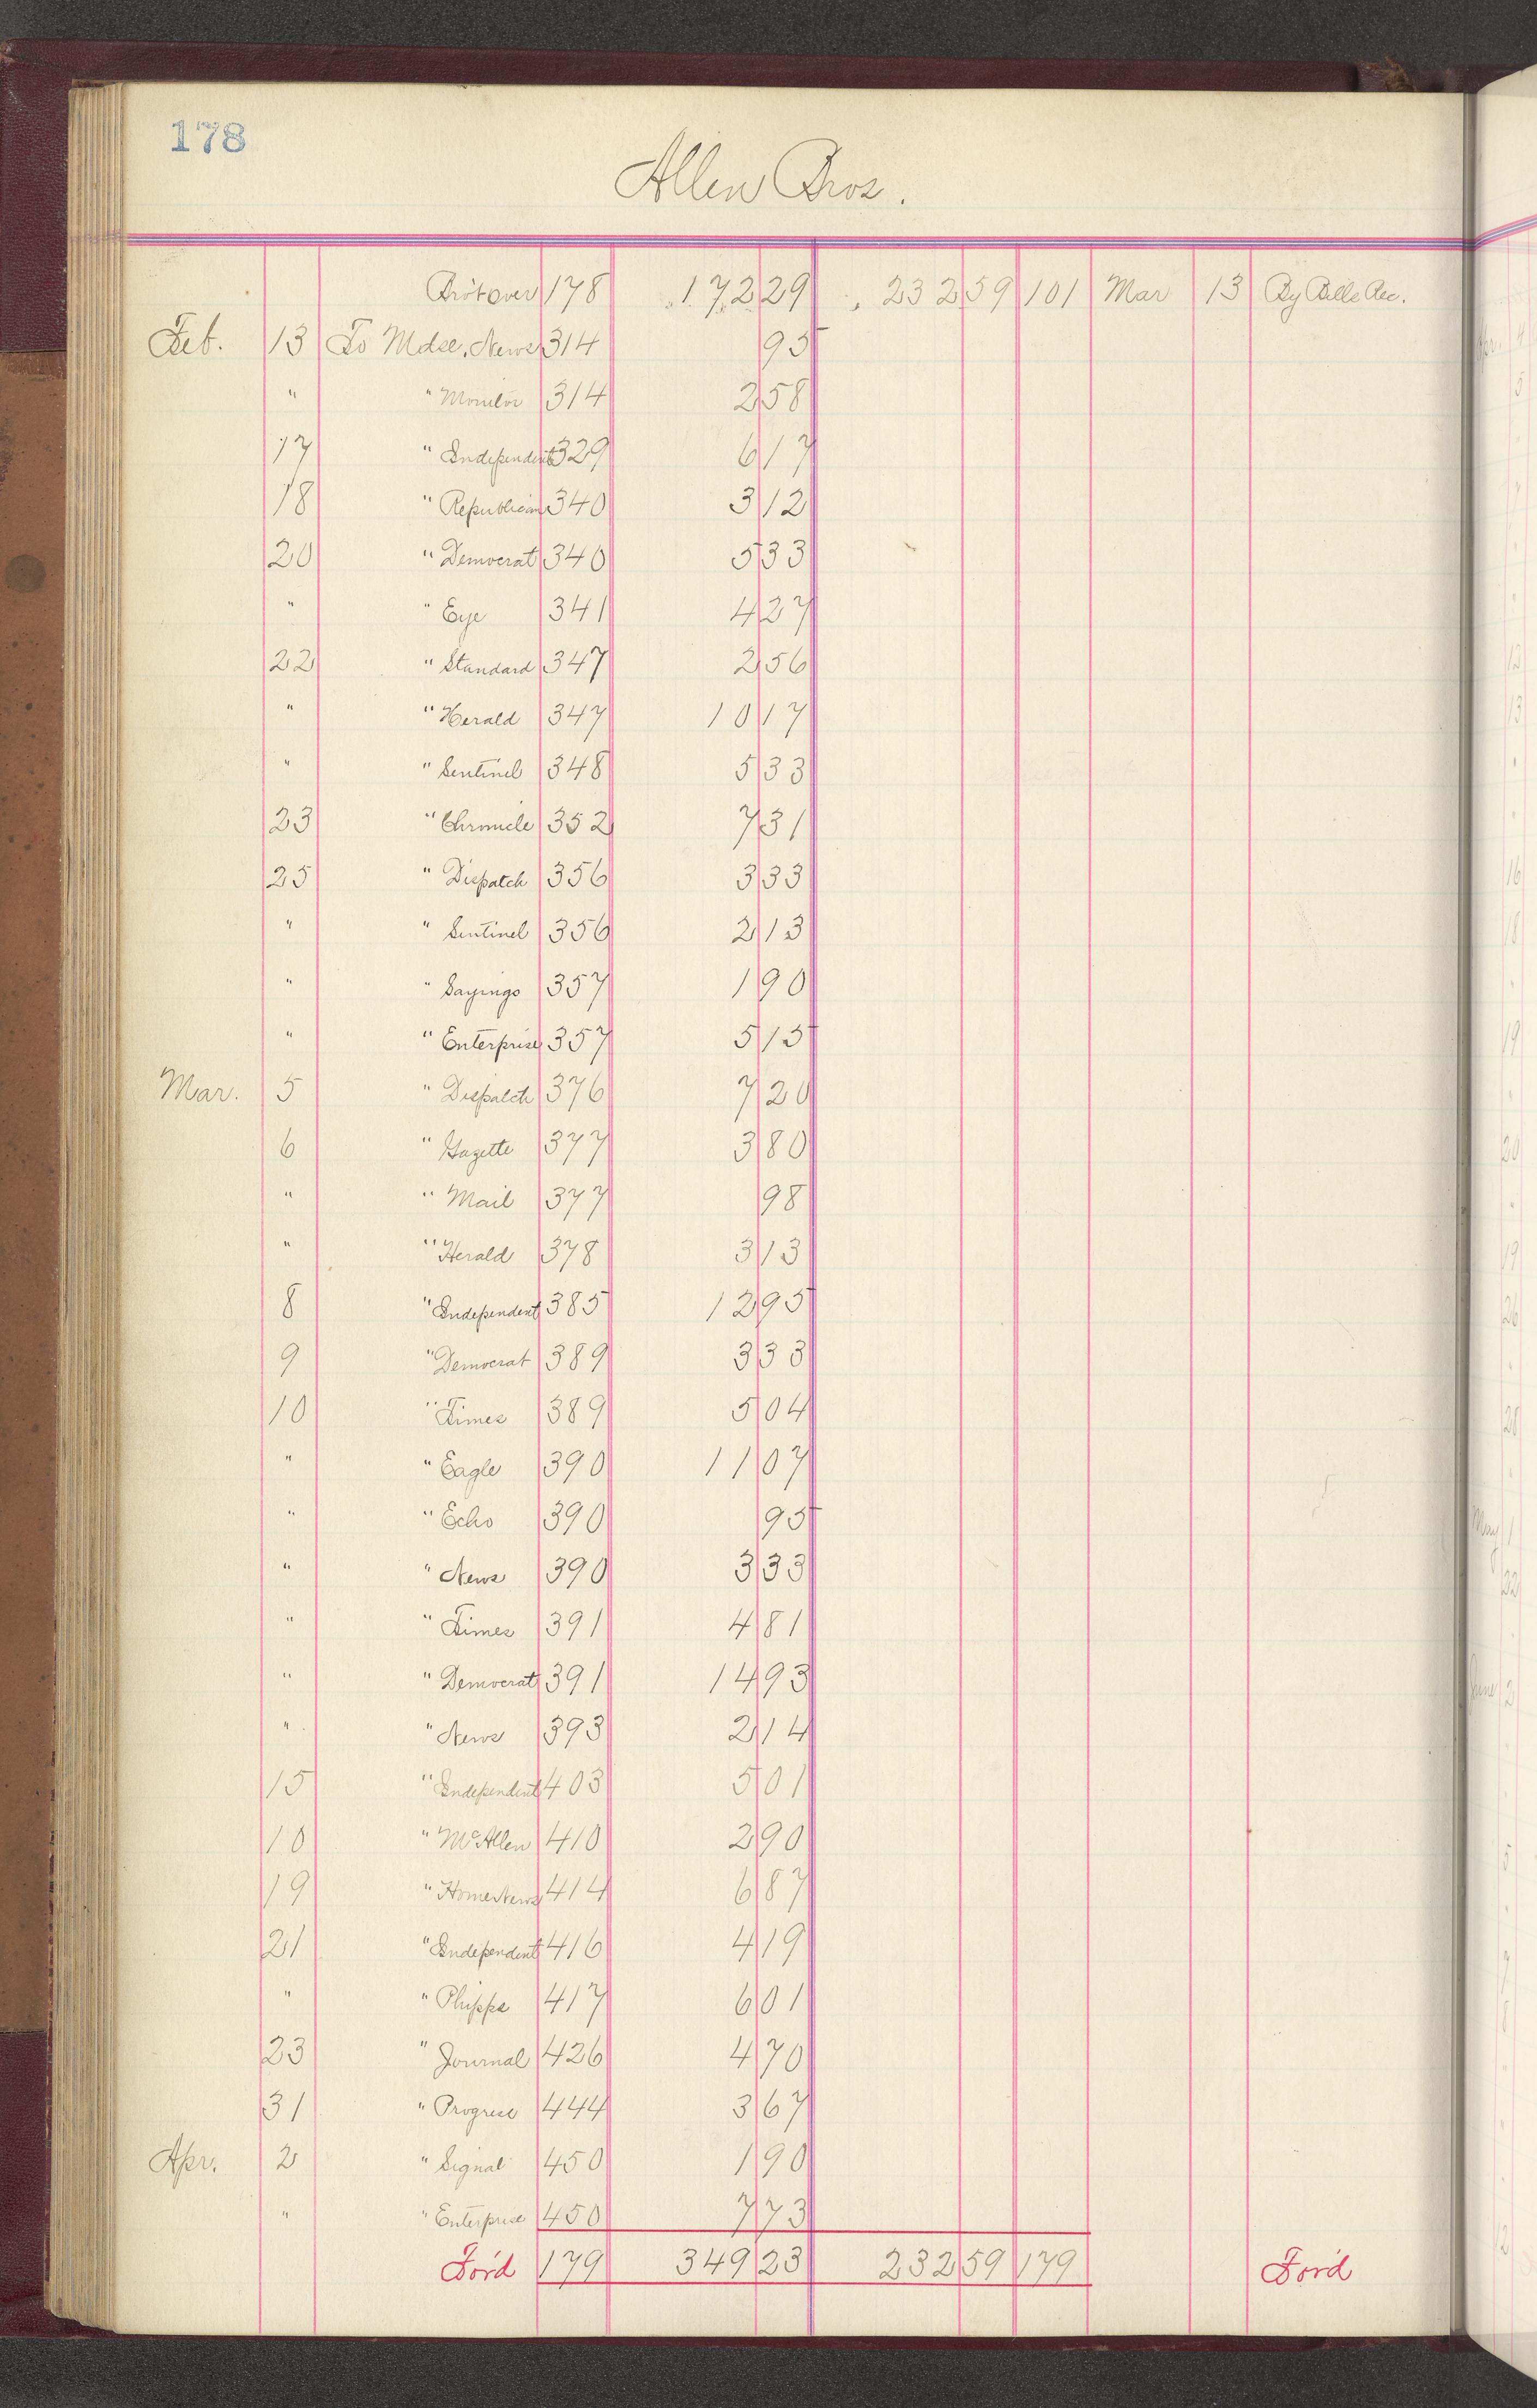 178
Allen Bros.
Bro't over 178 172 29 232 59 101 Mar 13 By Bills Rec.
Feb. 13 To Mdse. News 314 95
" " Monitor 314 2 58
17 " Independent 329 6 17
18 " Republican 340 3 12
20 " Democrat 340 5 33
" " Eye 341 4 27
22 " Standard 347 2 56
" " Herald 347 10 17
" " Sentinel 348 5 33
23 " Chronicle 352 7 31
25 " Dispatch 356 3 33
" " Sentinel 356 2 13
" " Sayings 357 1 90
" " Enterprise 357 5 15
Mar. 5 " Dispatch 376 7 20
6 " Gazette 377 3 80
" " Mail 377 98
" " Herald 378 3 13
8 " Independent 385 12 95
9 " Democrat 389 3 33
10 " Times 389 5 04
" " Eagle 390 11 07
" " Echo 390 95
" " News 390 3 33
" " Times 391 4 81
" " Democrat 391 14 93
" " News 393 2 14
15 " Independent 403 5 01
18 " McAllen 410 2 90
19 " Home News 414 6 87
21 " Independent 416 4 19
" " Phipps 417 6 01
23 " Journal 426 4 70
31 " Progress 444 3 67
Apr. 2 " Signal 450 1 90
" " Enterprise 450 7 73
For'd 179 349 23 232 59 179 For'd